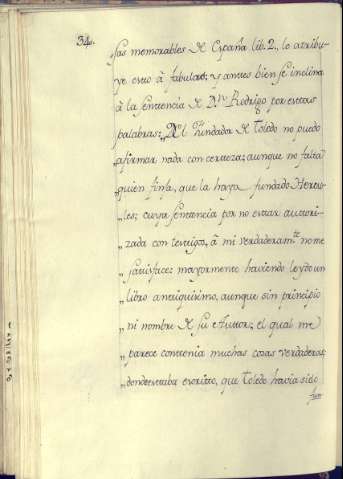 34.
sas memorables de España lib. 2. lo atribu-
ye esto à fabulas; y antes bien se inclina
à la sentencia de Dn. Rodrigo por estas
palabras: Del fundador de Toledo no puedo
afirmar nada con certeza; aunque no falta
quien finja, que la haya fundado Hercu-
„les; cuya sentencia por no estar autori-
„zada con testigos, à mi verdaderamte. no me
„satisface: mayormente haviendo leydo un
„libro antiquisimo, aunque sin principio
„ni nombre de su Auttor; el qual me
„parece contenia muchas cosas verdaderas;
„donde estaba escritto, que Toledo havia sido